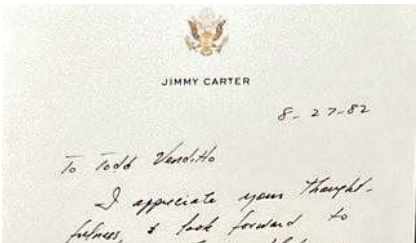 JIMMY CARTER
8-27-82
To Todd Venditto
I appreciate your thought-
fulness, & look forward to